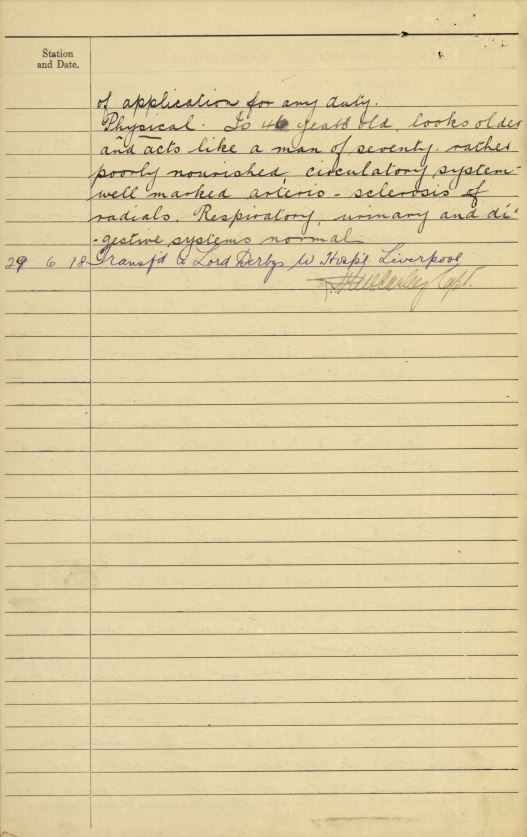 Station
and Date.
of application for any duty.
Physical. Is 46 years old, looks older
and acts like a man of seventy. rather
poorly nourished, circulatory system-
well marked arterio-sclerosis of
radials. Respiratory, urinary and di-
-gestive systems normal
29 6 18 Transf'd to Lord Derbys W Hosp'l Liverpool
Capt.